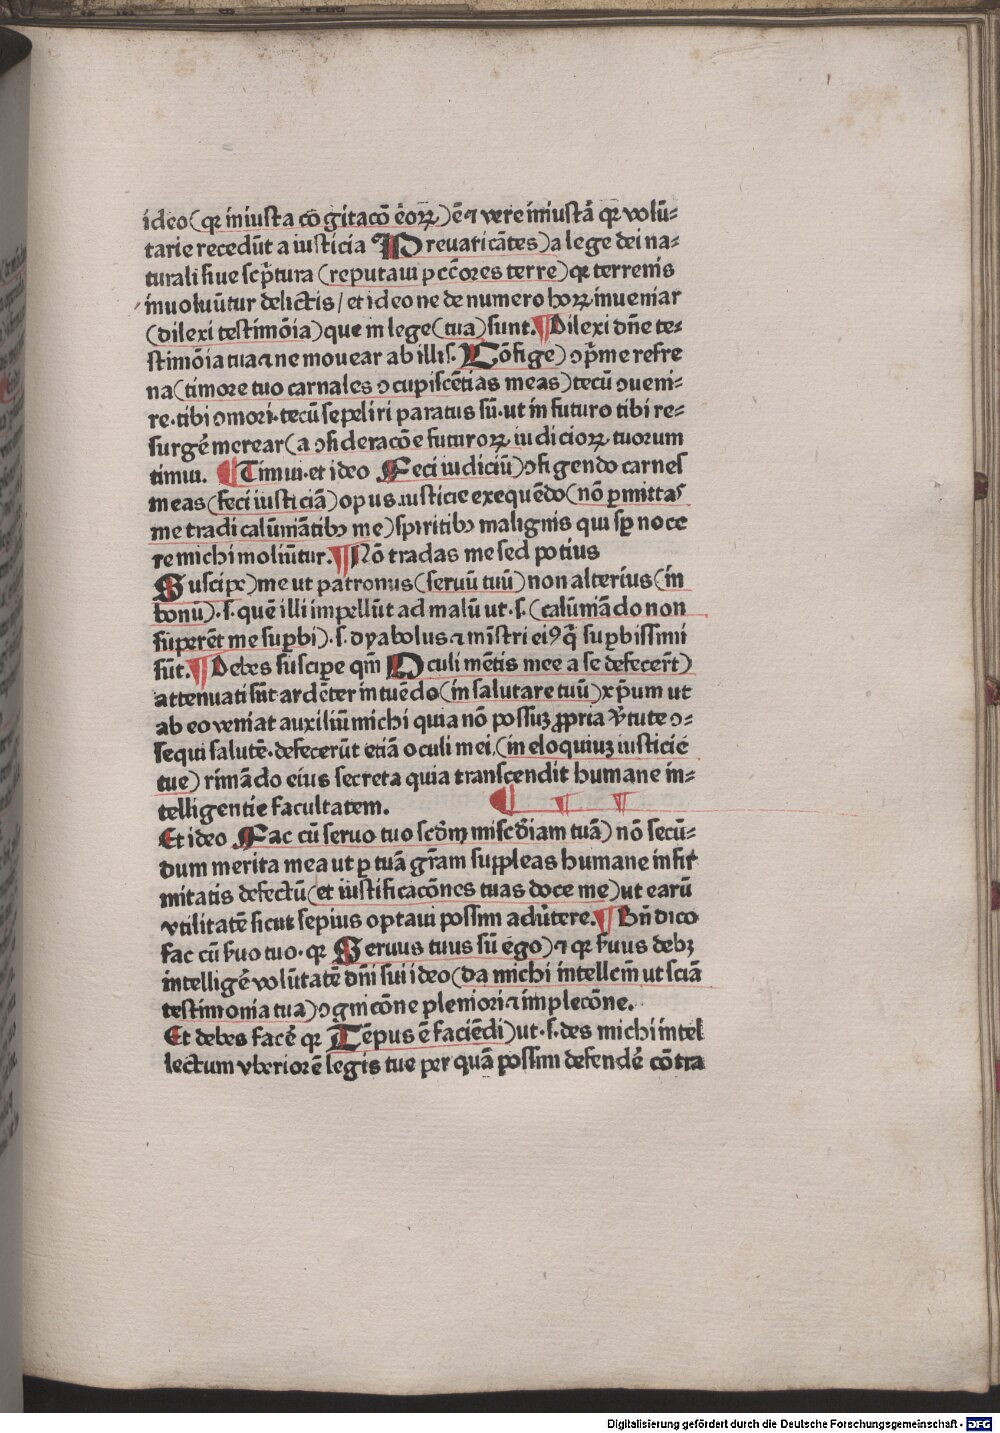 ideo (qꝛ iniusta cōgitacō eoꝝ) ē ⁊ vere iniustā qꝛ volū⸗
tarie recedūt a iusticia Preuaricātes) a lege dei na⸗
turali siue scpͥtura (reputaui pccōres terre) qꝛ terrenis
inuoluūtur delictis / et ideo ne de numero hoꝝ inueniar
(dilexi testimōia) que in lege (tua) sunt. ¶ Dilexi dn̄e te⸗
stimōia tua ⁊ ne mouear ab illis. Cōfige) ↄpͥme refre
na (timore tuo carnales ↄcupiscētias meas) tecū ↄueni⸗
re. tibi ↄmori. tecū sepeliri paratus sū. ut in futuro tibi re⸗
surgē merear (a ↄsideracōe futuroꝝ iudicioꝝ tuorum
timui. ¶ Timui. et ideo Feci iudiciū) ↄfigendo carnes
meas (feci iusticiā) opus iusticie exequēdo (nō ꝑmittas
me tradi calūniātibꝫ me) spiritibꝫ malignis qui sꝑ noce
re michi moliūtur. ¶ Nō tradas me sed potius
Suscipe) me ut patronus (seruū tuū) non alterius (in
bonū). s. quē illi impellūt ad malū ut. s. (calūniādo non
superēt me suꝑbi). s. dyabolus ⁊ mīstri eiꝰ qͥ suꝑbissimi
sūt. ¶ Debes suscipe qm̄ Oculi mētis mee a se defecerūt)
attenuati sūt ardēter intuēdo (in salutare tuū) xp̄um ut
ab eo veniat auxiliū michi quia nō possuꝫ ꝓpria v̄tute ↄ⸗
sequi salutē. defecerūt etiā oculi mei, (in eloquiuꝫ iusticie
tue) rimādo eius secreta quia transcendit humane in⸗
telligentie facultatem.
Et ideo Fac cū seruo tuo scd̄m misc̄diam tuā) nō secū⸗
dum merita mea ut ꝑ tuā grām suppleas humane infir
mitatis defectū (et iustificacōnes tuas doce me) ut earū
vtilitatē sicut sepius optaui possim aduͥtere. ¶ Bn̄ dico
fac cū sͥuo tuo. qꝛ Seruus tuus sū ego) ⁊ qꝛ sͥuus debꝫ
intelligē volūtatē dn̄i sui ideo (da michi intellcm̄ ut sciā
testimonia tua) ↄgnicōne pleniori ⁊ implecōne.
Et debes facē qꝛ Tēpus ē faciēdi) ut. s. des michi intel
lectum vberiorē legis tue per quā possim defendē cōtra
Digitalisierung gefördert durch die Deutsche Forschungsgemeinschaft - DFG